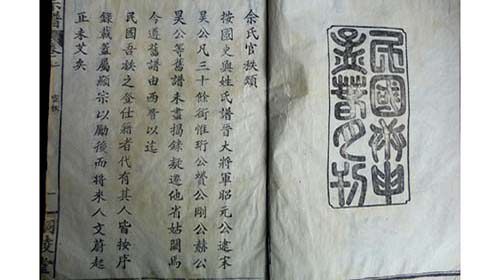 民國丙申
孟春月刊
余氏官秩類
按國史與姓氏譜晉大將軍昭元公逮宋
昊公凡三十餘銜惟珩公贊公剛公赫公
昊公等舊譜未盡揭錄疑遷他省姑闕焉
今遵舊譜由西晉以迄
民國吾族之登仕籍者代有其人皆按序
錄載蓋屬顯宗以勵後而將來人文蔚起
正未艾矣
宗譜
官秩